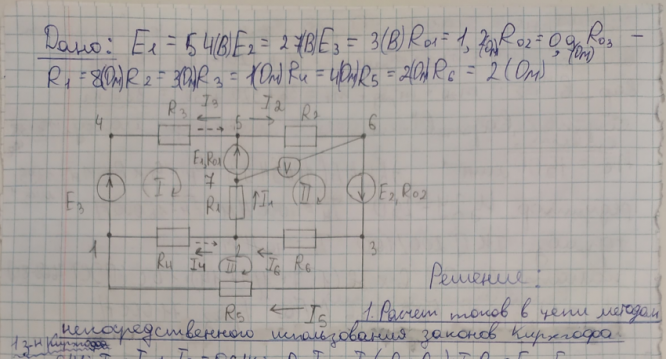 Дано: E1 = 54(В) E2 = 27(В) E3 = 3(В) R01 = 1,2(Ом) R02 = 0,9(Ом) R03 –
R1 = 8(Ом) R2 = 3(Ом) R3 = 1(Ом) R4 = 4(Ом) R5 = 2(Ом) R6 = 2(Ом)
R3 I3 I2 R2
4 5 6
E1,R01 V
7
E3 I R1 I1 II E2,R02
1 2 3
R4 I4 III I6 R6
R5 I5
Решение:
1. Расчет токов в цепи методом
непосредственного использования законов Кирхгофа